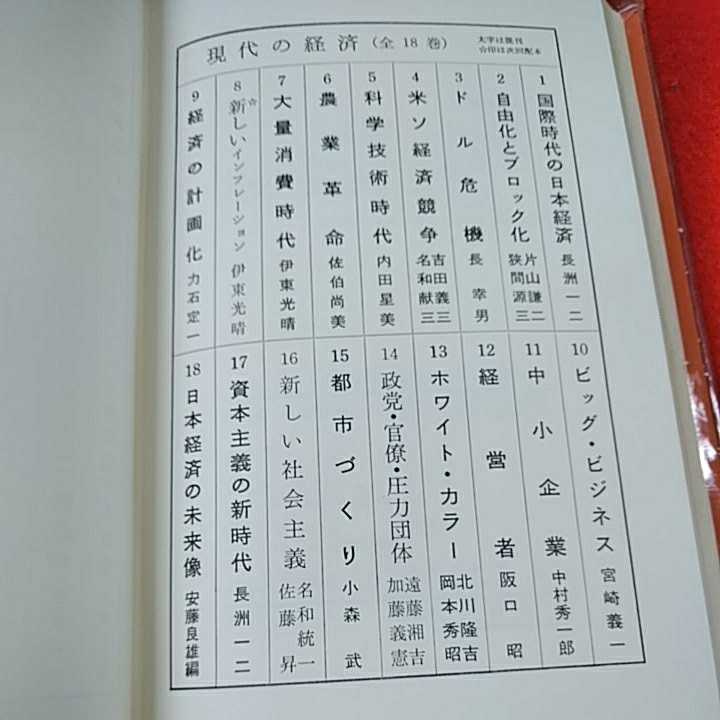 現代の経済（全18巻）
太字は既刊
☆印は次回配本
1 国際時代の日本経済 長洲一二
2 自由化とブロック化 片山謙二 狭間源三
3 ドル危機 長幸男
4 米ソ経済競争 吉田義三 名和献三
5 科学技術時代 内田星美
6 農業革命 佐伯尚美
7 大量消費時代 伊東光晴
8 ☆新しいインフレーション 伊東光晴
9 経済の計画化 力石定一
10 ビッグ・ビジネス 宮崎義一
11 中小企業 中村秀一郎
12 経営者 阪口昭
13 ホワイト・カラー 北川隆吉 岡本秀昭
14 政党・官僚・圧力団体 遠藤湘吉 加藤義憲
15 都市づくり 小森武
16 新しい社会主義 名和統一 佐藤昇
17 資本主義の新時代 長洲一二
18 日本経済の未来像 安藤良雄編